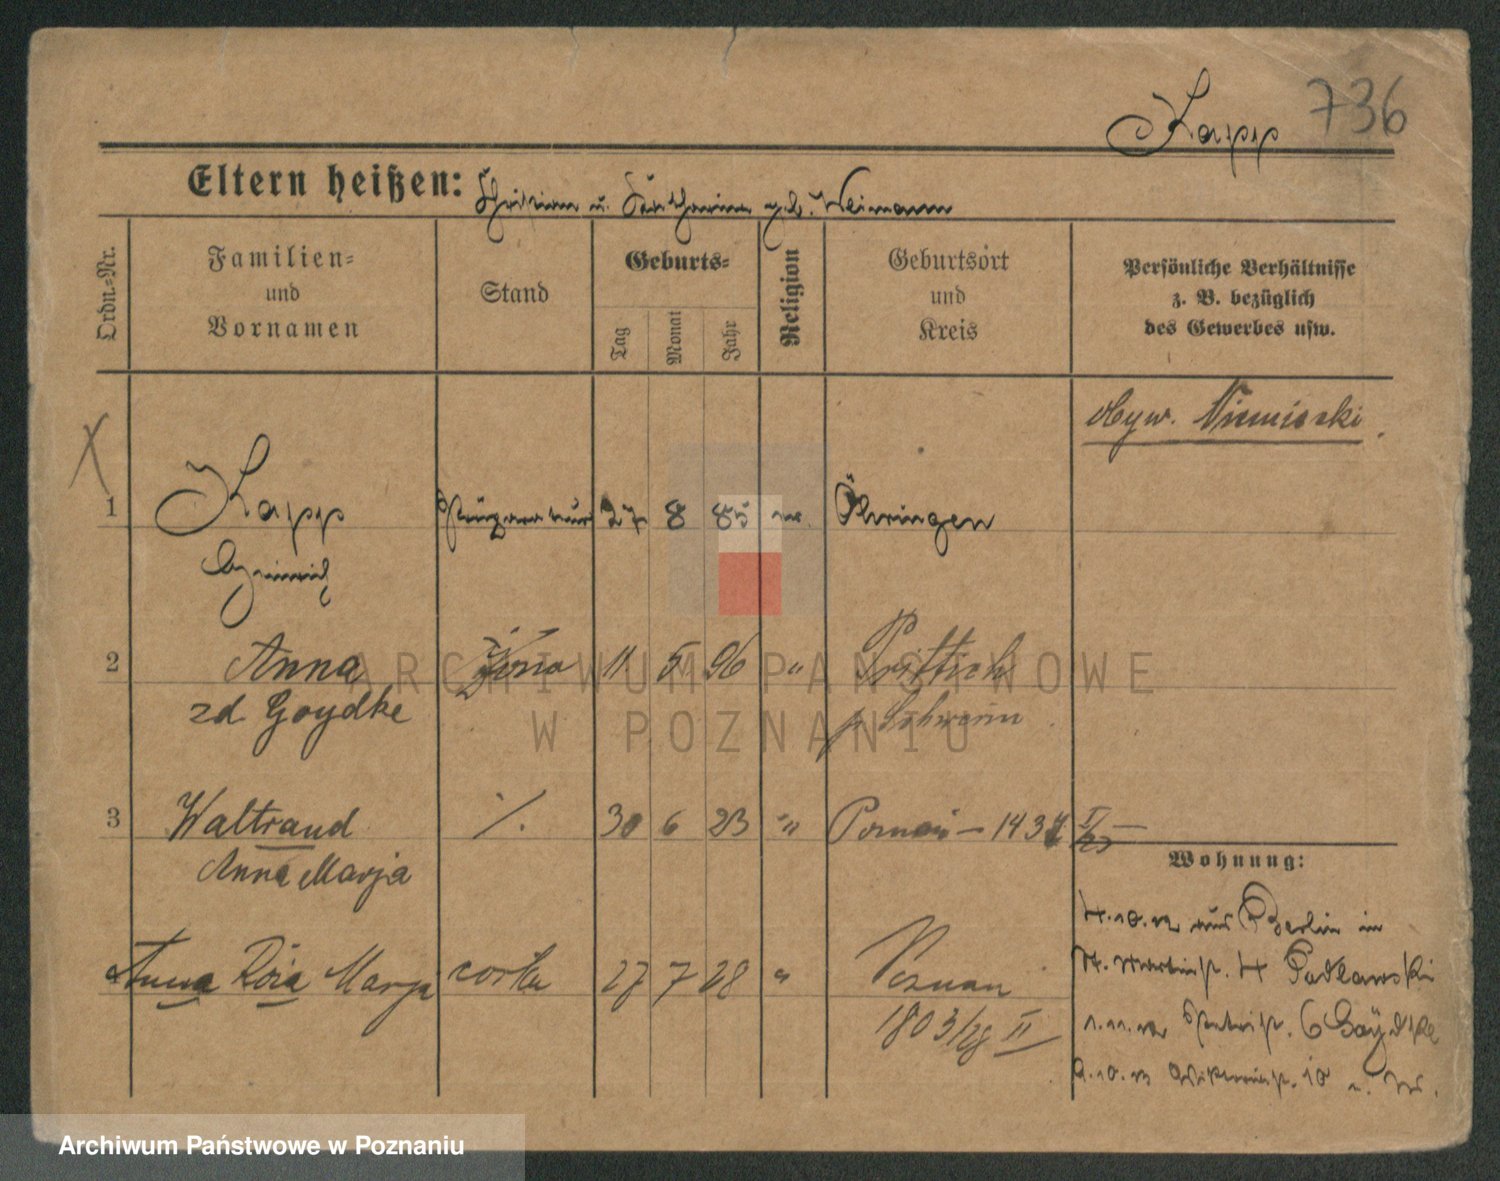 Kapp 736
Eltern heißen: Christian u. Katharina geb. Weimann
Ordn.-Nr.
Familien-
und
Vornamen
Stand
Geburts-
Tag
Monat
Jahr
Religion
Geburtsort
und
Kreis
Persönliche Verhältnisse
z. B. bezüglich
des Gewerbes usw.
obyw. Niemiecki
1 Kapp 27 8 85 Öhringen
Heinrich
2 Anna żona 11 5 96 " Prittisch
zd. Goydke p. Schwerin
3 Waltraud ./. 30 6 23 " Poznań – 1437
Anna Marja
Wohnung:
aus Berlin in
4 Padlewski
4 Anna Róża Marja córka 27 7 28 " Poznań
1803/28 II
6 Goydke
ARCHIWUM PAŃSTWOWE
W POZNANIU
Archiwum Państwowe w Poznaniu